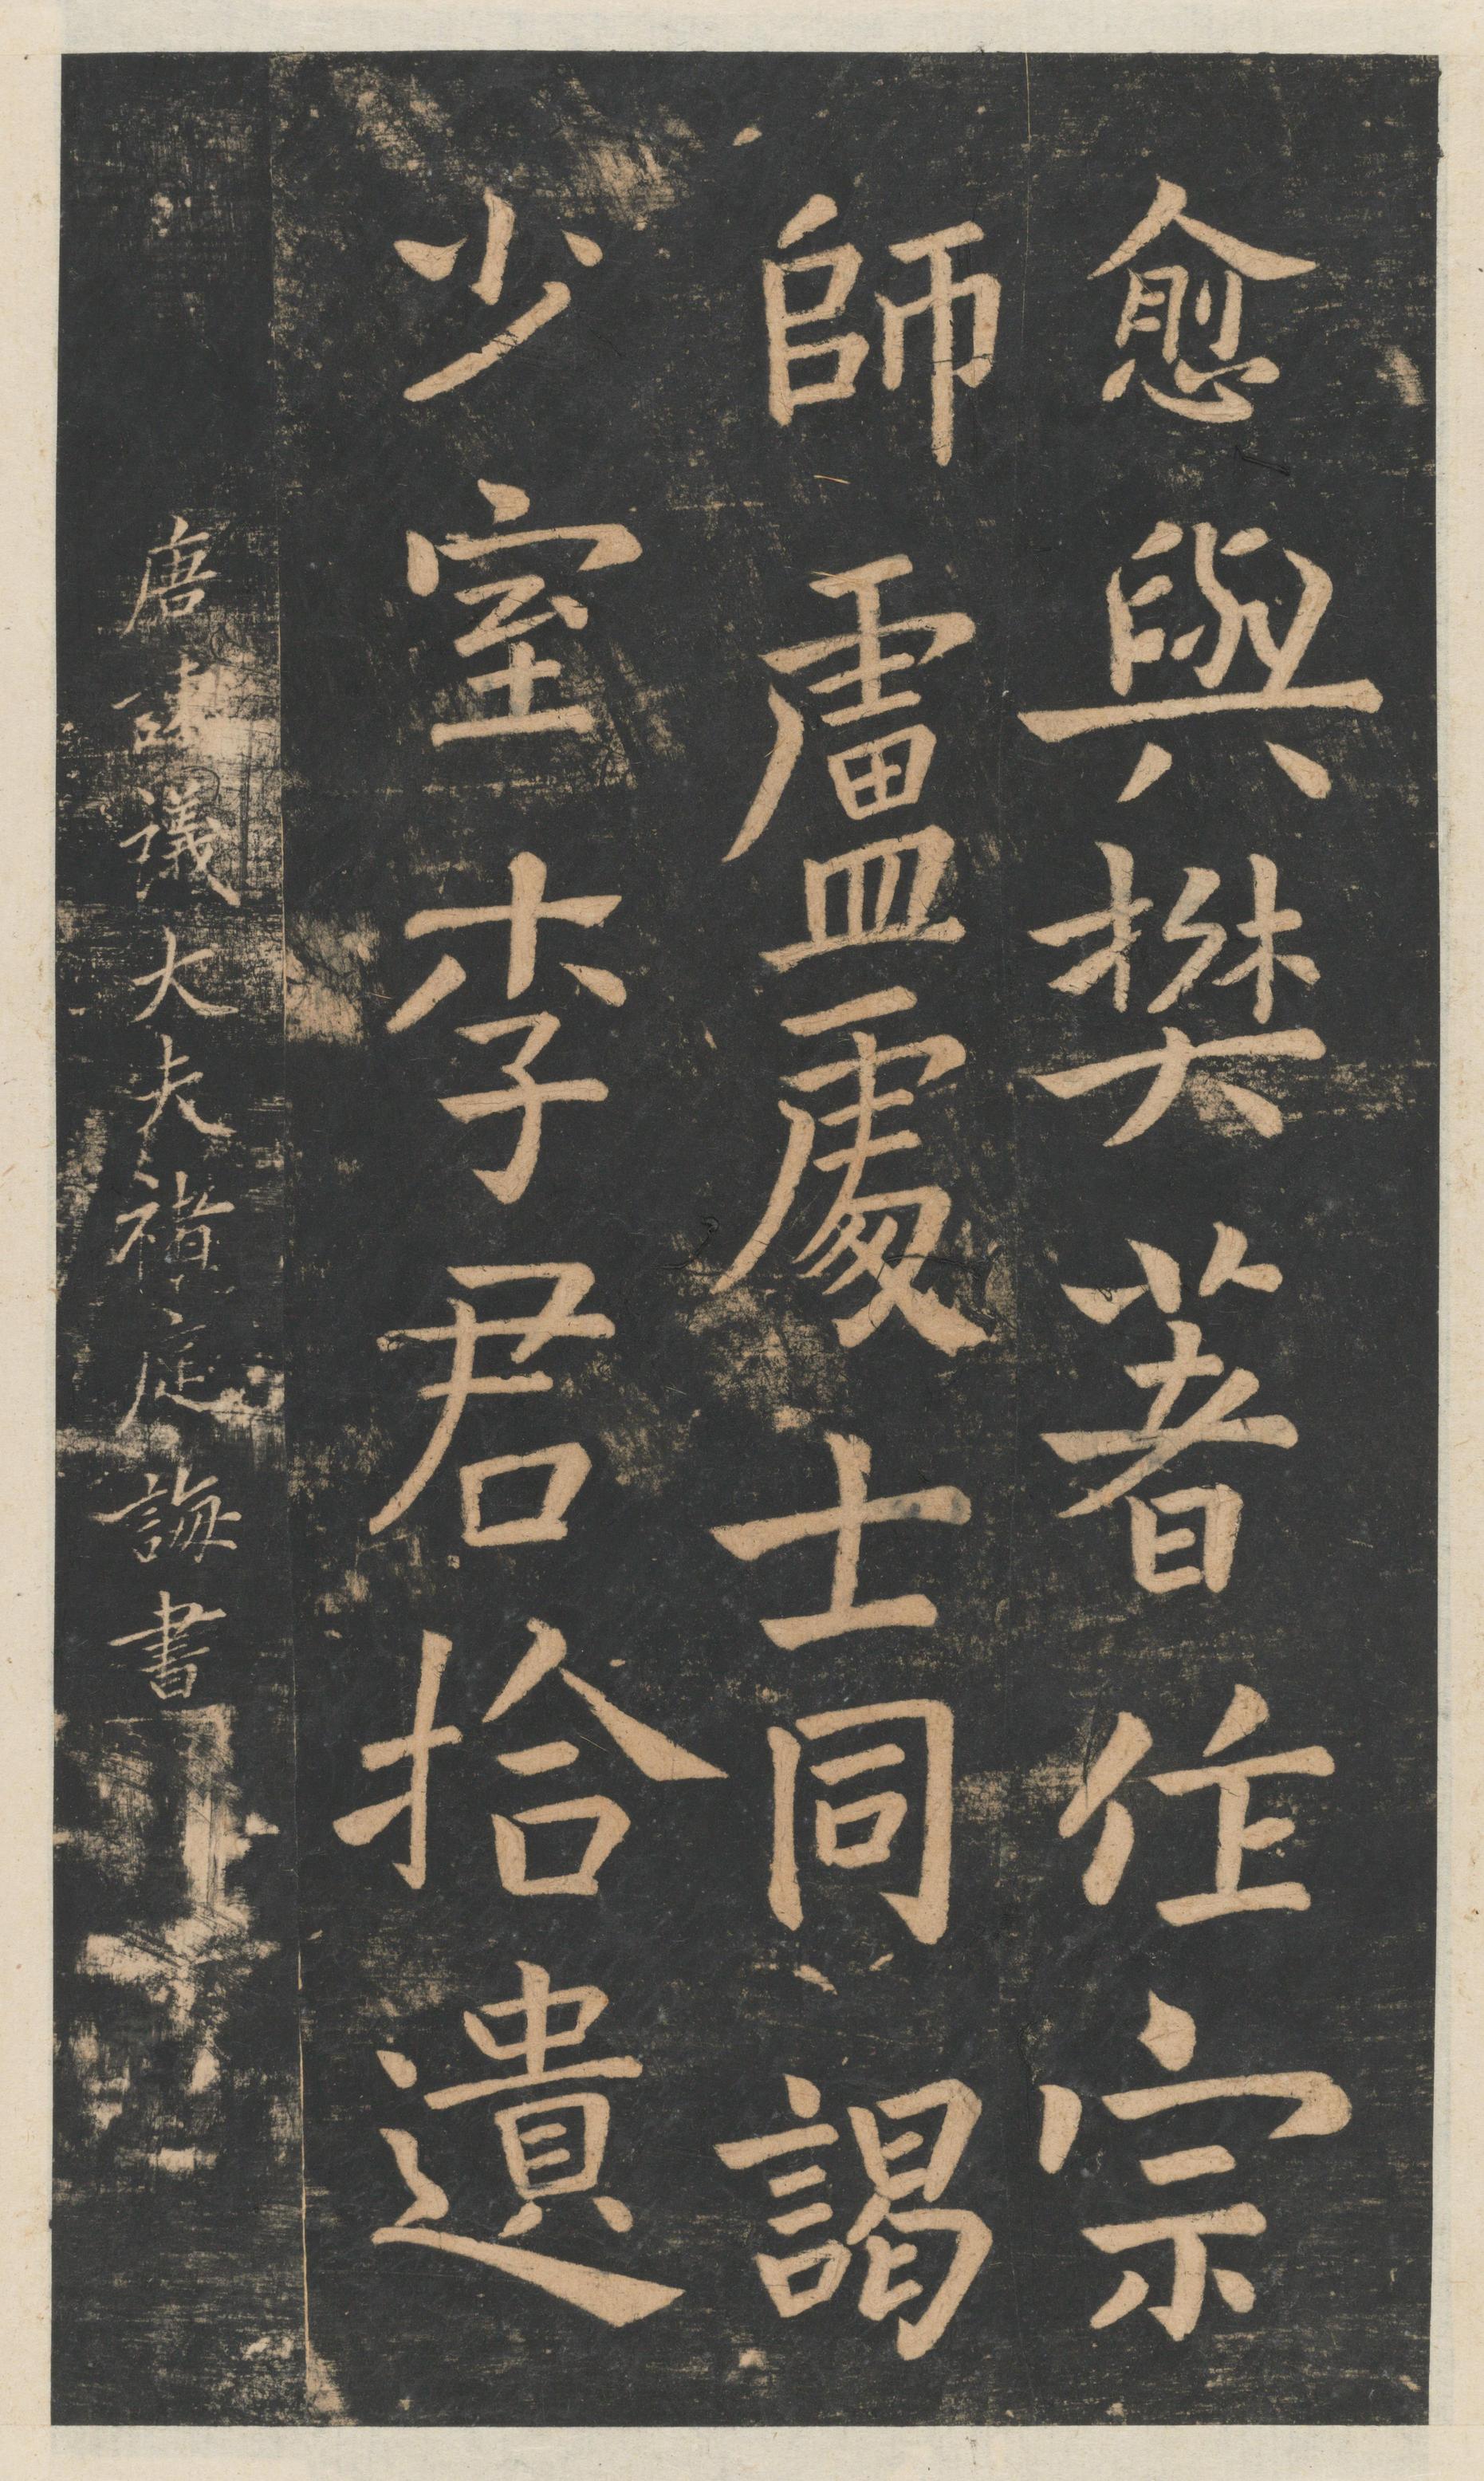 愈與樊著作宗
師盧處士同謁
少室李君拾遺
唐諫議大夫褚庭誨書